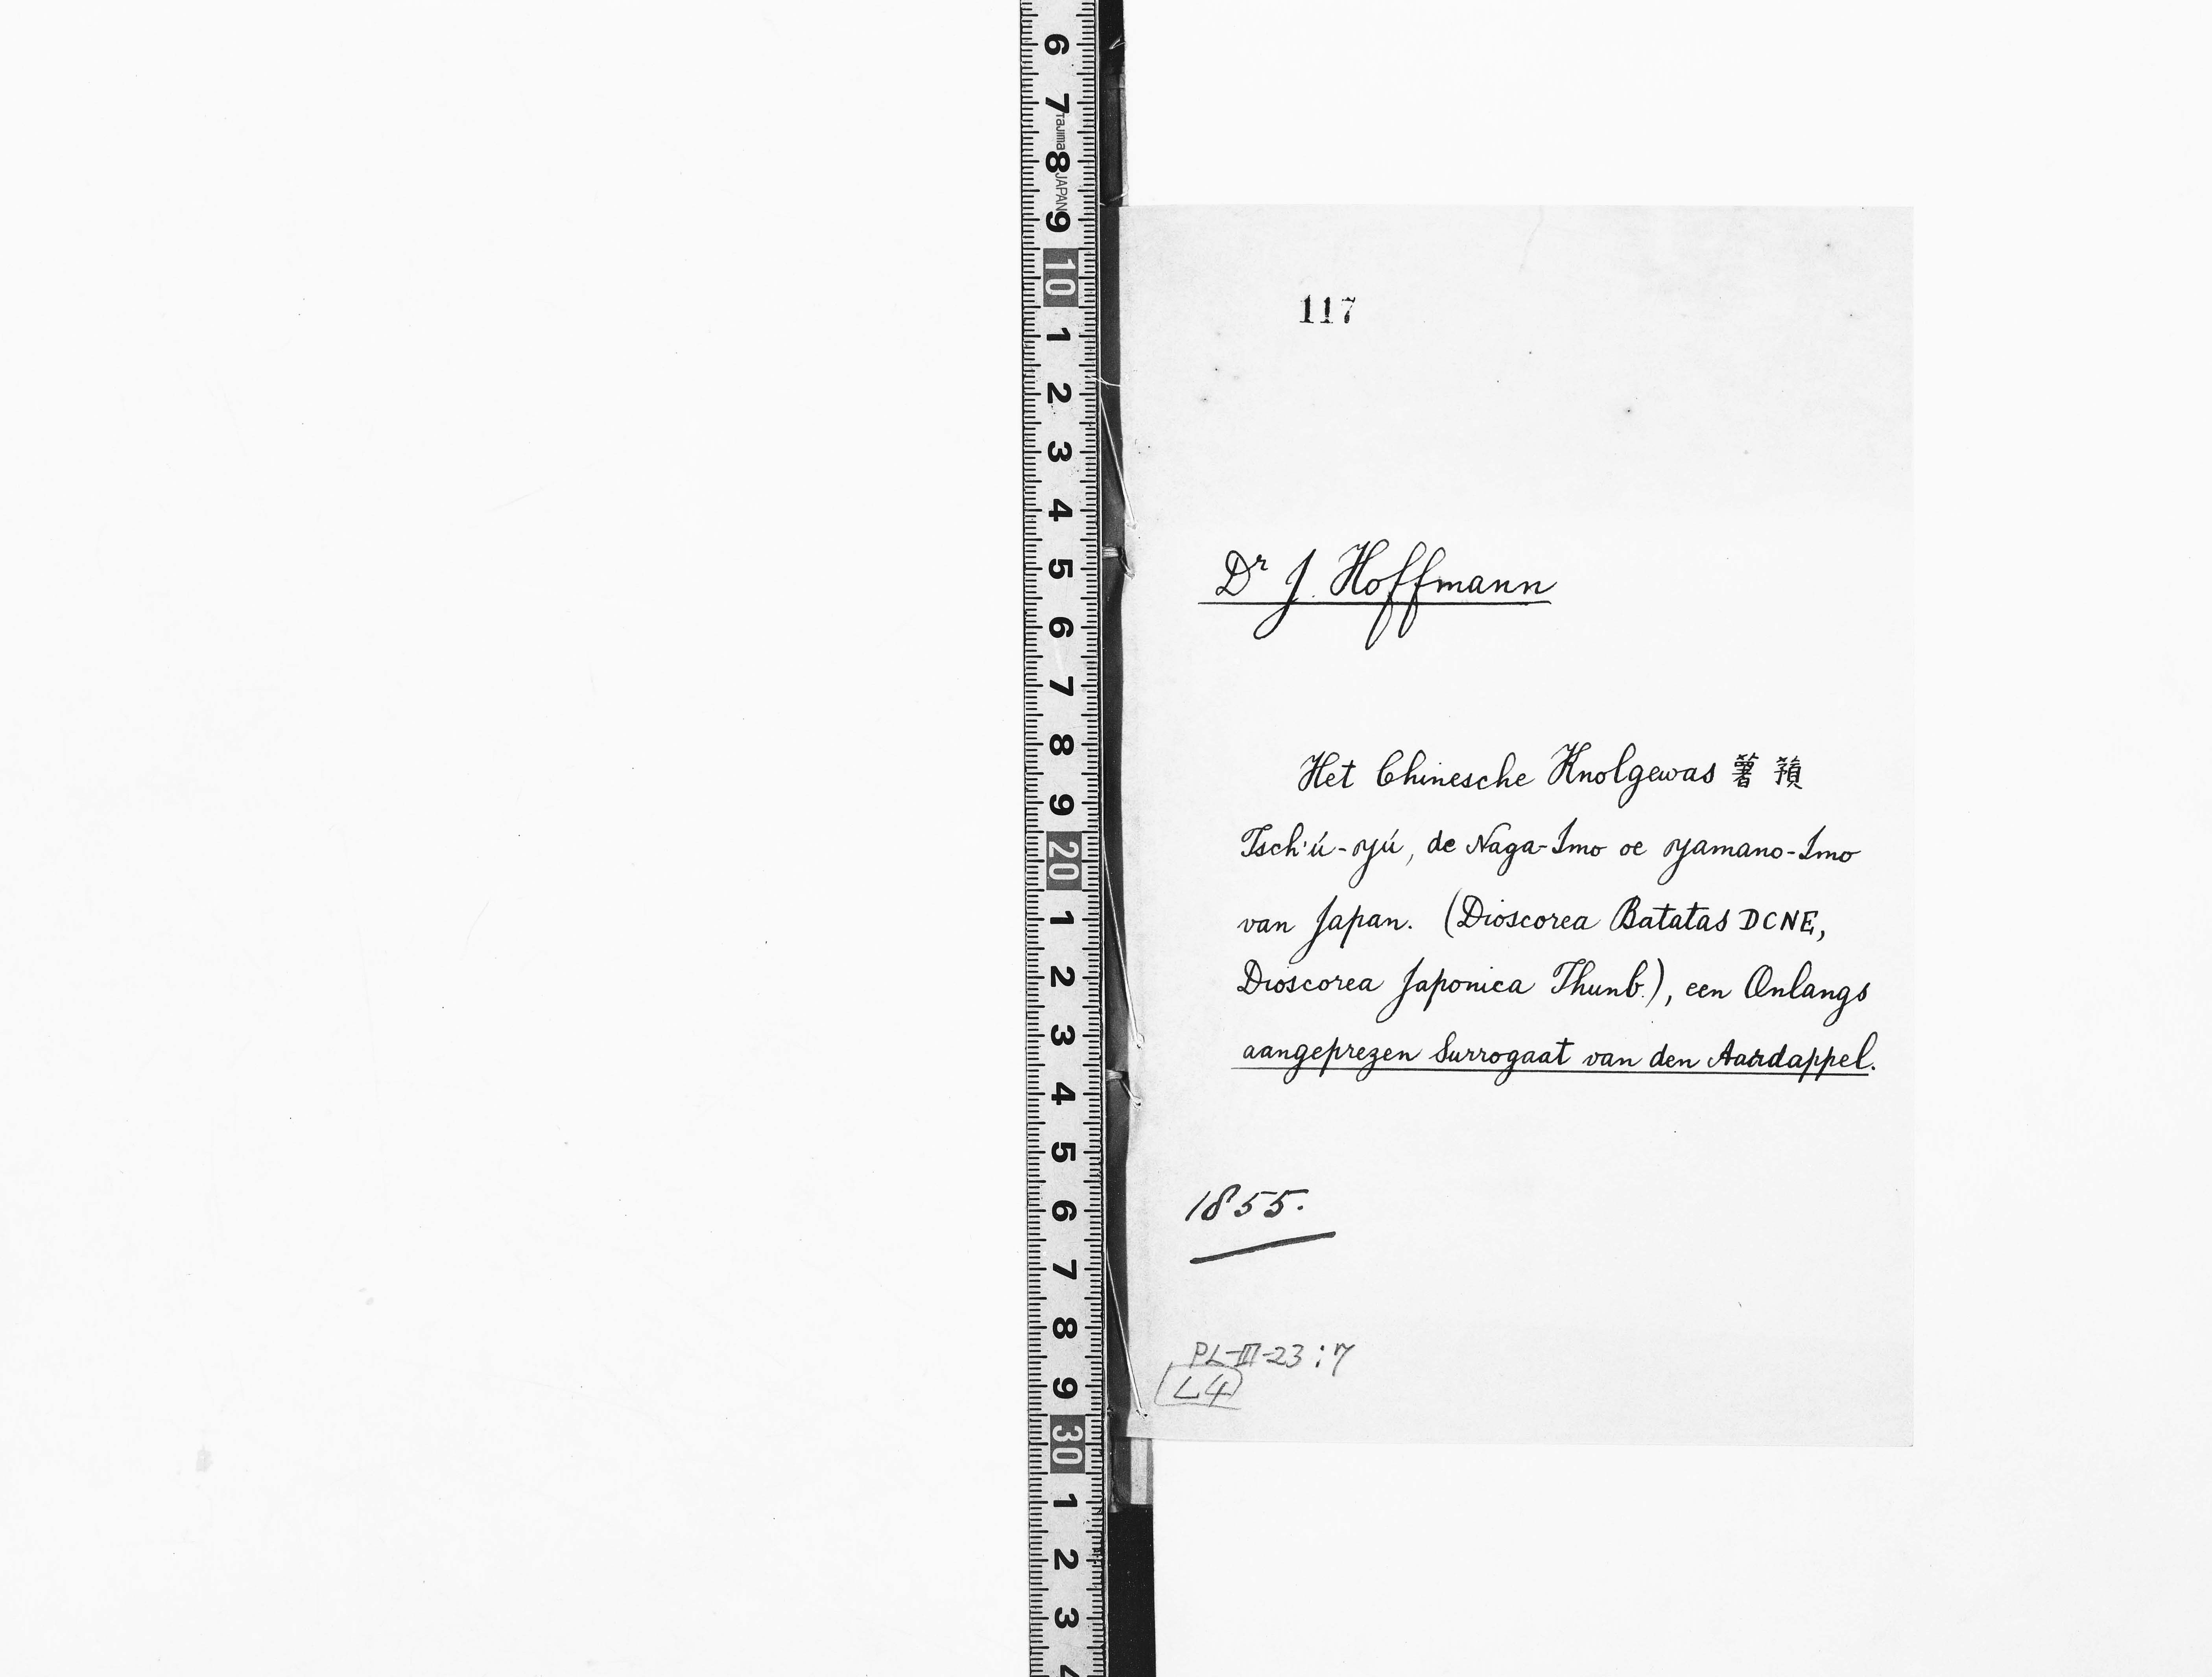 6 7 8 9 10 1 2 3 4 5 6 7 8 9 20 1 2 3 4 5 6 7 8 9 30 1 2 3 4
Tajima JAPAN
117
Dr J. Hoffmann
Het Chinesche Knolgewas 薯
Tsch'ú-yú, de Naga-Imo oe yamano-Imo
van Japan. (Dioscorea Batatas DCNE,
Dioscorea Japonica Thunb.), een Onlangs
aangeprezen Surrogaat van den Aardappel.
1855.
PL-III-23:7
L4